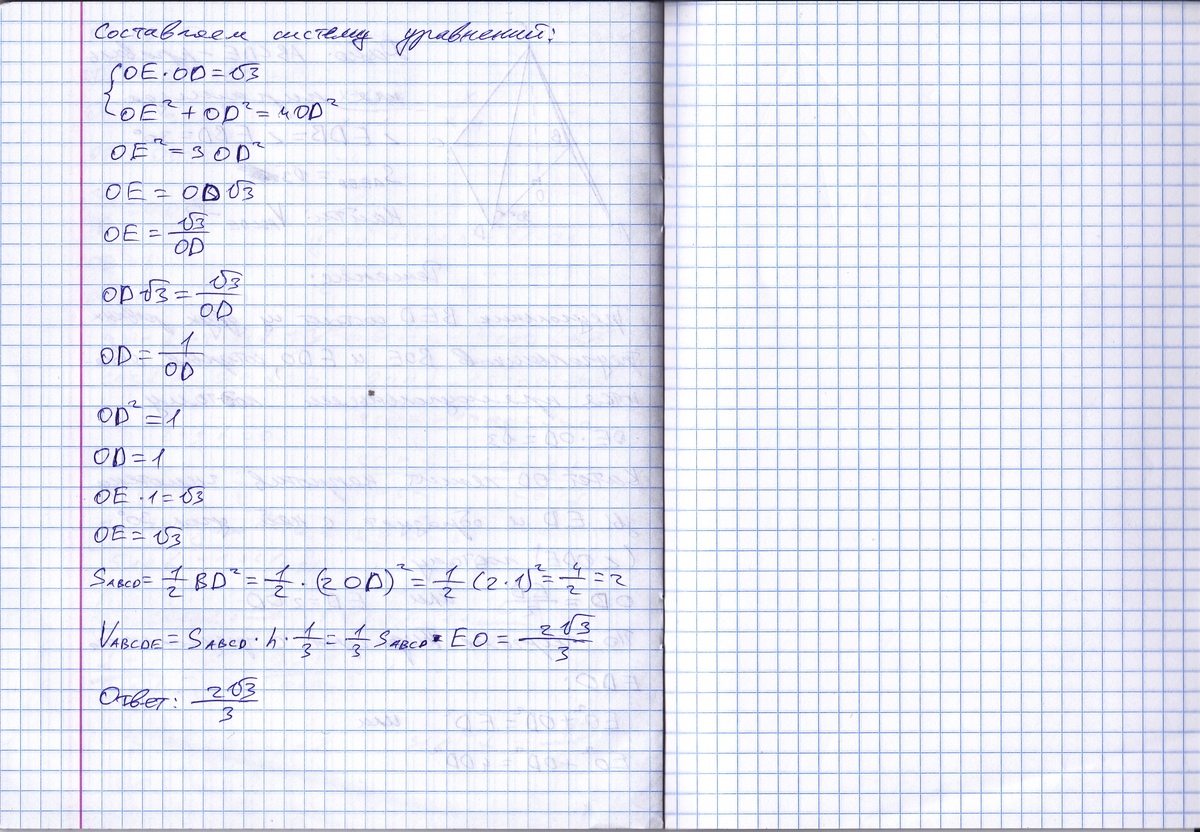 Составляем систему уравнений:
{OE·OD=√3
OE²+OD²=4OD²
OE²=3OD²
OE=OD√3
OE=√3/OD
OD√3=√3/OD
OD=1/OD
OD²=1
OD=1
OE·1=√3
OE=√3
SABCD=1/2 BD²=1/2·(2OD)²=1/2(2·1)²=4/2=2
VABCDE=SABCD·h·1/3=1/3 SABCD·EO=2√3/3
Ответ: 2√3/3